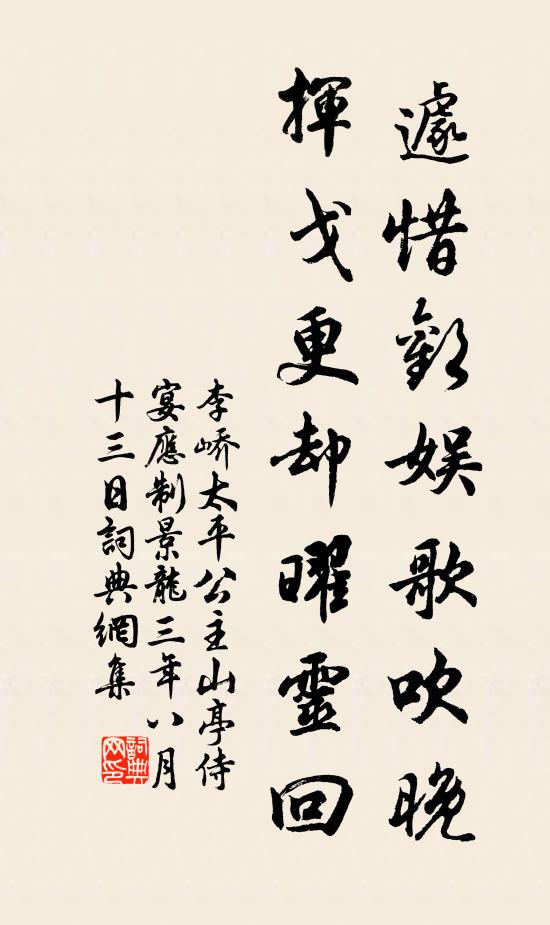 遽惜歡娛歌吹晚
揮戈更却曜靈回
李嶠太平公主山亭侍
宴應制景龍三年八月
十三日詞典網集
詞典
网印